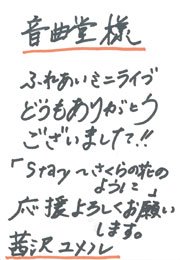 音曲堂様
ふれあいミニライブ
どうもありがとう
ございました!!
「Stay〜さくらの花の
ように」
応援よろしくお願い
します。
茜沢ユメル